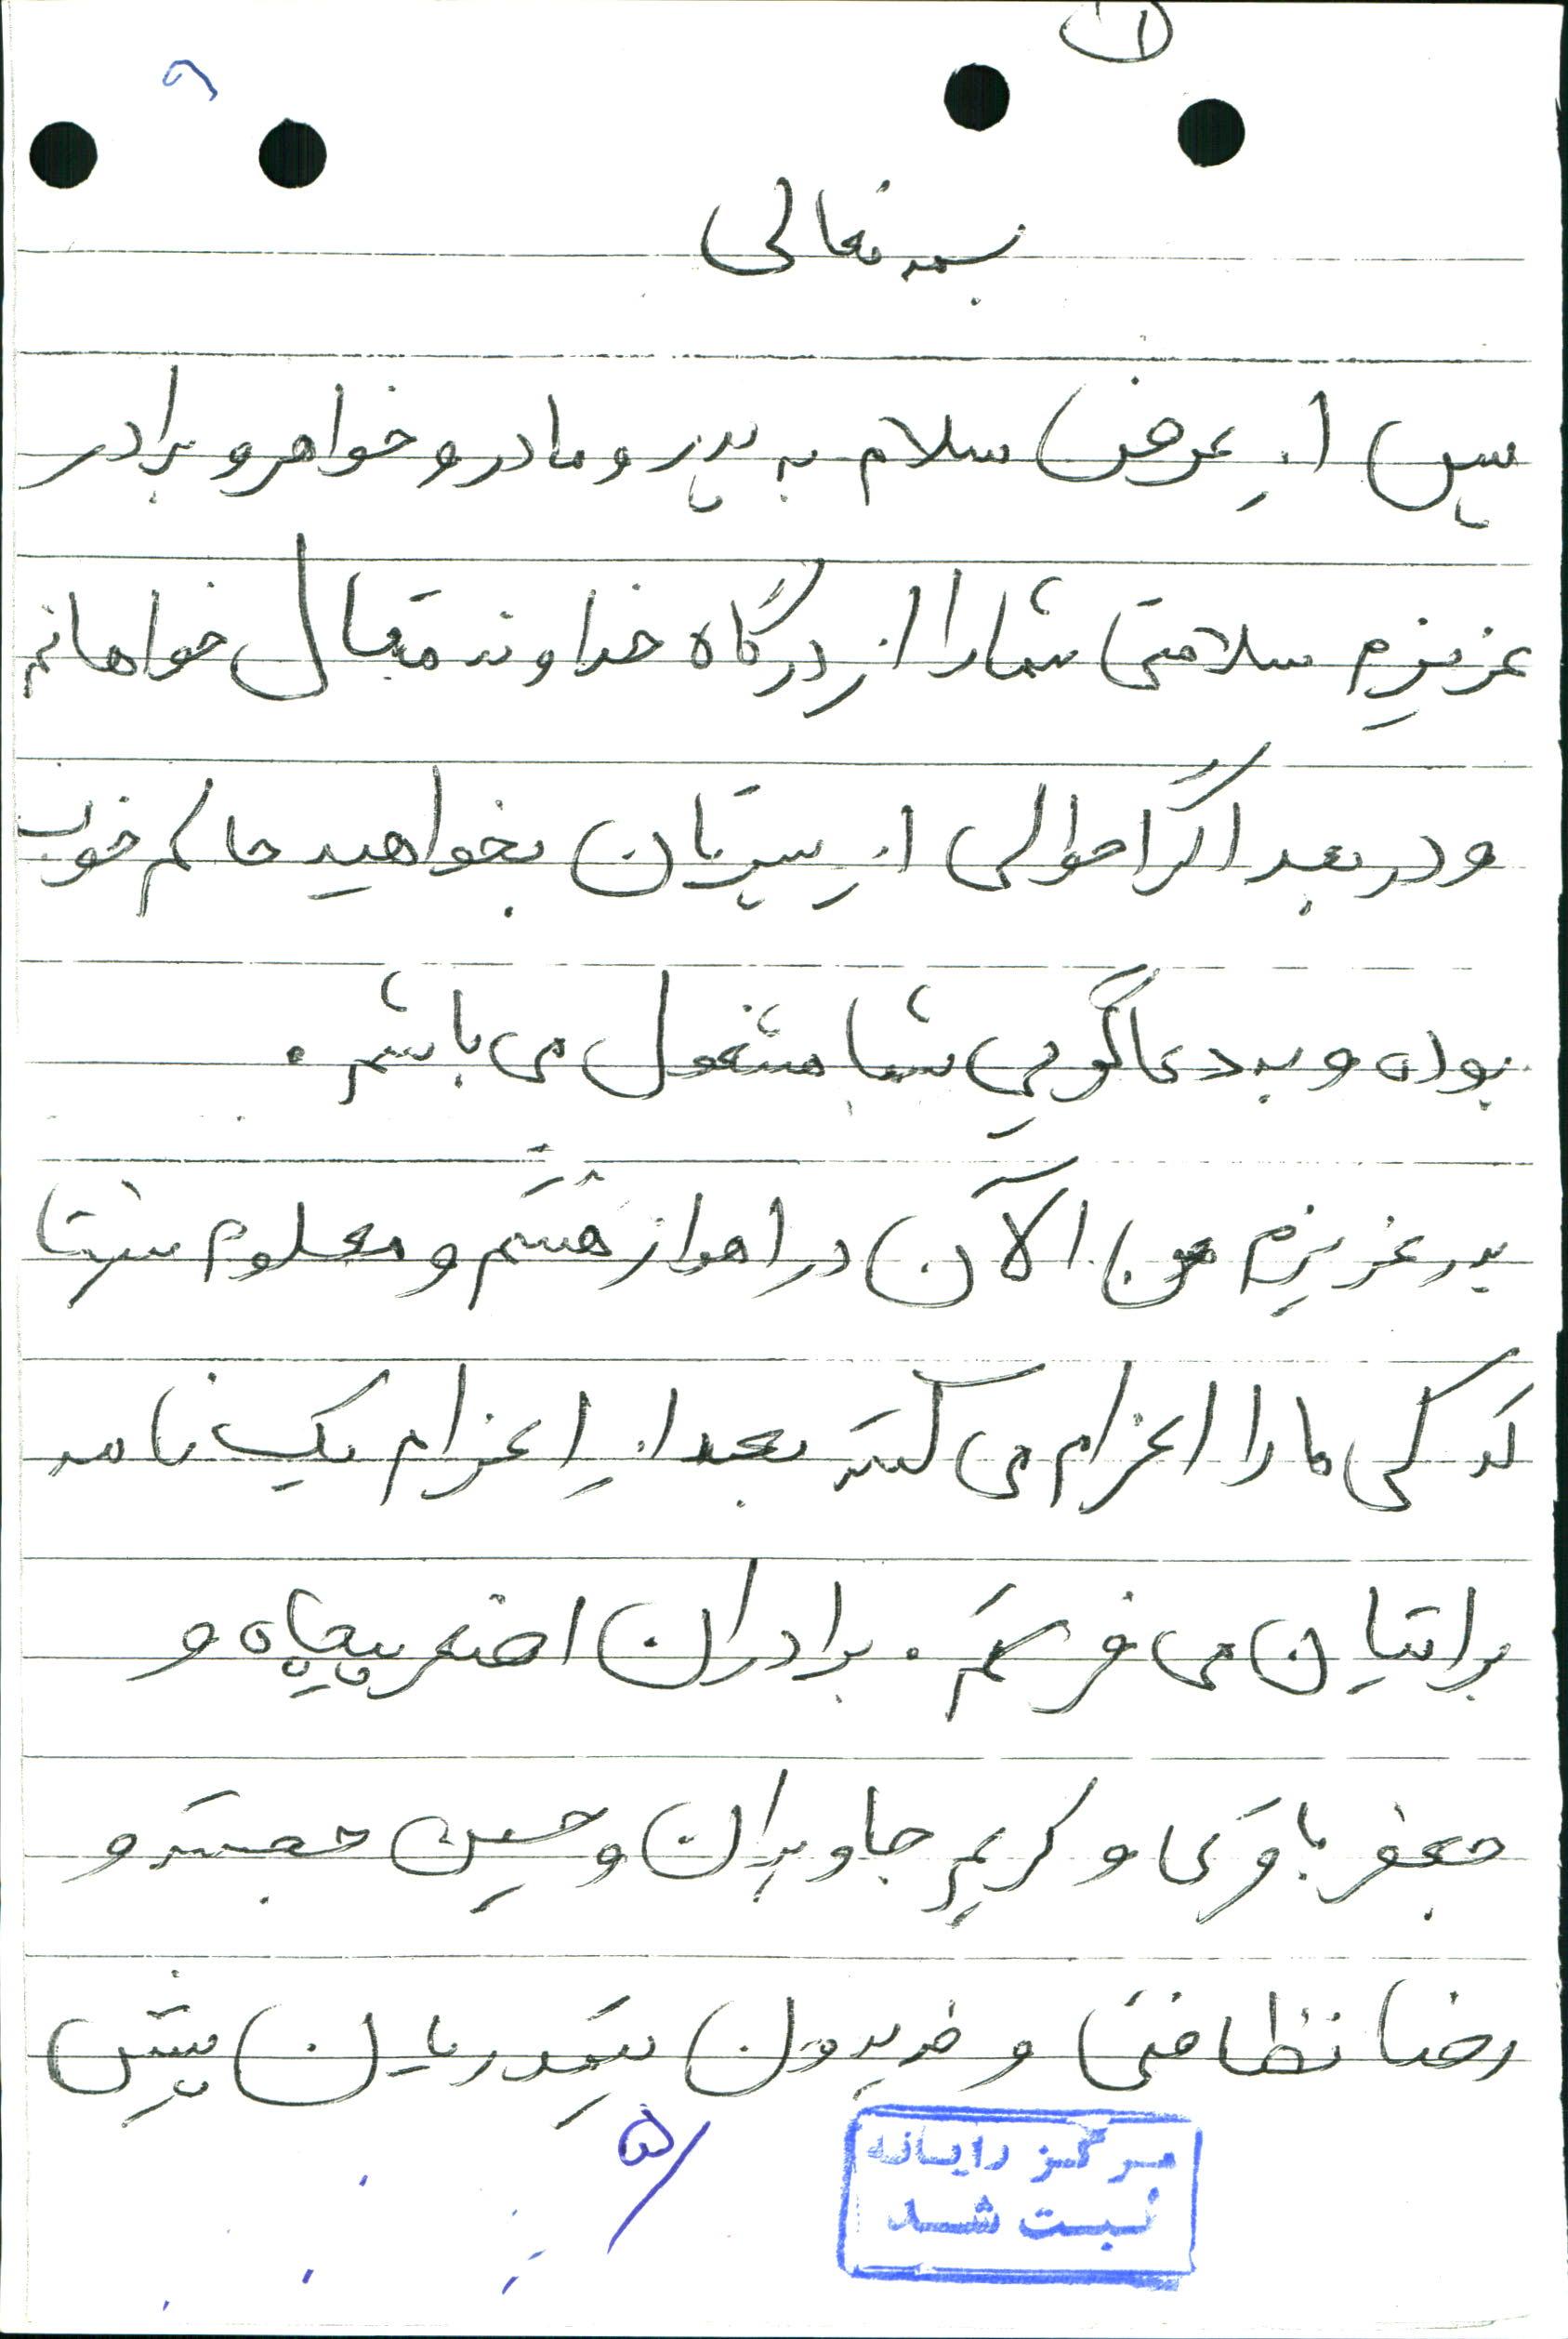 ۱
۹
بسمه تعالی
پس از عرض سلام به پدر و مادر و خواهر و برادر
عزیزم سلامتی شما را از درگاه خداوند متعال خواهانم
و در بعد اگر احوالی از پسرتان بخواهید حالم خوب
بوده و به دعاگویی شما مشغول می باشم .
پدر عزیزم من الآن در اهواز هستم و معلوم نیست
که کی ما را اعزام می کنند بعد از اعزام یک نامه
برایتان می فرستم . برادران اصغر پیچاه و
جعفر باقری و کریم جاویدان و حسین خجسته و
رضا نظافتی و فریدون بیمدریان پیش
۵
مرکز رایانه
ثبت شد